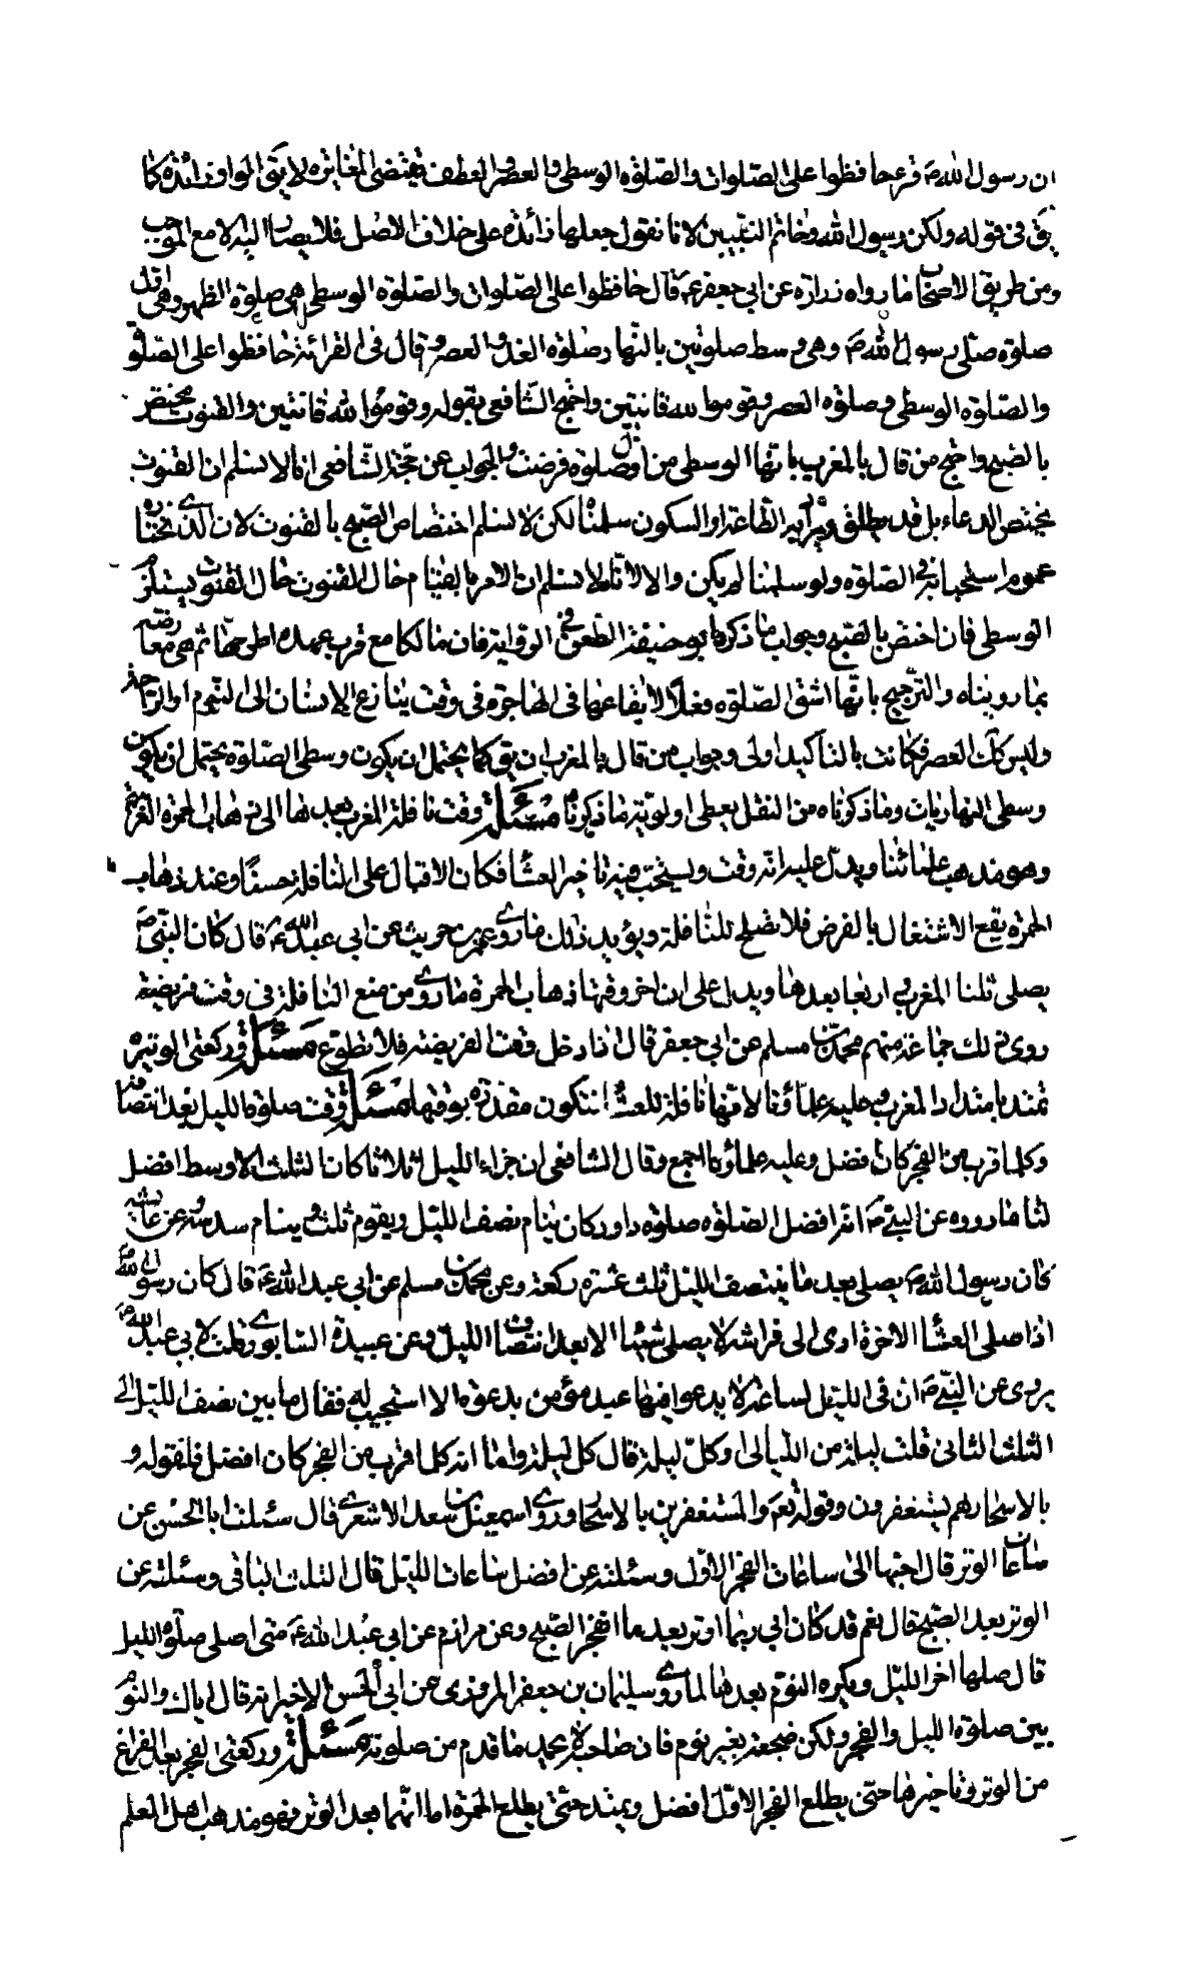 ان رسول الله ص قرء حافظوا على الصلوات والصلوة الوسطى والعصر والعطف يقتضى المغايرة لا يق الواو زائدة كما
يق فى قوله ولكن رسول الله وخاتم النبيين لانا نقول جعلها زائدة على خلاف الاصل فلا يصار اليه الا مع الموجب
ومن طريق الاصحاب ما رواه زرارة عن ابى جعفر ع قال حافظوا على الصلوات والصلوة الوسطى هى صلوة الظهر وهى اول
صلوة صلى رسول الله ص وهى وسط صلوتين بالنهار صلوة الغداة والعصر وقال فى القرائة حافظوا على الصلوة
والصلوة الوسطى وصلوة العصر وقوموا لله قانتين واحتج الشافعى بقوله وقوموا لله قانتين والقنوت مختص
بالصبح واحتج من قال بالمغرب بانها الوسطى من اول صلوة فرضت والجواب عن حجة الشافعى انا لا نسلم ان القنوت
يختص الدعاء بل قد يطلق ويراد به الطاعة او السكون سلمنا لكن لا نسلم اختصاص الصبح بالقنوت لان الذى نختاره
عموم استحبابه فى الصلوة ولو سلمنا لم يكن والا لانا لا نسلم ان الامر بالقيام حال القنوت يستلزم
الوسطى فان اختص بالصبح وجواب ما ذكره ابو حنيفة الطعن فى الرواية فان مالكا مع قرب عهده اطرحها ثم هى معارضة
بما رويناه والترجيح بانها اشق الصلوة فعلا لايقاعها فى الهاجرة فى وقت ينازع الانسان الى النوم او الراحة
وليس كك العصر فكانت بالتأكيد اولى وجواب من قال بالمغرب ان يق كما يحتمل ان يكون وسطى الصلوة يحتمل ان يكون
وسطى النهاريات وما ذكرناه من النقل يعطى اولوية ما ذكرناه مسئلة وقت نافلة المغرب بعدها الى ذهاب الحمرة الغربية
وهو مذهب علمائنا ويدل عليه انه وقت يستحب فيه تاخير العشا فكان الاقبال على النافلة حسنا وعند ذهاب
الحمرة يقع الاشتغال بالفرض فلا يصلح للنافلة ويؤيد ذلك ما روى عمرو بن حريث عن ابى عبد الله ع قال كان النبى ص
يصلى ثلثا المغرب واربعا بعدها ويدل على ان اخر وقتها ذهاب الحمرة ما روى من منع النافلة فى وقت فريضة
روى ذلك جماعة منهم محمد بن مسلم عن ابى جعفر قال اذا دخل وقت الفريضة فلا تطوع مسئلة وركعتى الوتيرة
تمتد بامتداد المغرب وعليه علماؤنا لانها نافلة للعشا فتكون مقدرة بوقتها مسئلة وقت صلوة الليل بعد انتصافه
وكلما قرب من الفجر كان افضل وعليه علماؤنا اجمع وقال الشافعى ان جزاء الليل اثلاثا كان الثلث الاوسط افضل
لنا ما رووه عن النبى ص انه افضل الصلوة صلوة داود كان ينام نصف الليل ويقوم ثلثه وينام سدسه وعن عايشة
كان رسول الله ص يصلى بعد ما ينتصف الليل ثلث عشرة ركعة وعن محمد بن مسلم عن ابى عبد الله ع قال كان رسول الله ص
اذا صلى العشاء الاخرة اوى الى فراشه لا يصلى شيئا الا بعد انتصاف الليل وعن عبيدة السابورى قلت لابى عبد الله ع
يروى عن النبى ص ان فى الليل لساعة لا يدعوا فيها عبد مؤمن بدعوة الا استجيب له فقال ما بين نصف الليل الى
الثلث الثانى قلت ليلة من الليالى او كل ليلة قال كل ليلة واما انه كلما اقرب من الفجر كان افضل فلقوله و
بالاسحار هم يستغفرون وقوله تعم والمستغفرين بالاسحار وروى اسمعيل بن سعد الاشعرى قال سئلت ابا الحسن عن
ساعات الوتر قال احبها الى ساعات الفجر الاول وسئلته عن افضل ساعات الليل قال الثلث الباقى وسئلته عن
الوتر بعد الصبح قال نعم قد كان ابى ربما اوتر بعد ما انفجر الصبح وعن مرازم عن ابى عبد الله ع متى اصلى صلوة الليل
قال صلها اخر الليل ويكره النوم بعدها لما روى سليمان بن جعفر المروزى عن ابى الحسن الاخير انه قال اياك والنوم
بين صلوة الليل والفجر ولكن ضجعة بغير نوم فان صاحبه لا يحمد ما قدم من صلوته مسئلة وركعتى الفجر بعد الفراغ
من الوتر وتاخيرها حتى يطلع الفجر الاول افضل ويمتد حتى يطلع الحمرة اما انهما بعد الوتر فهو مذهب اهل العلم